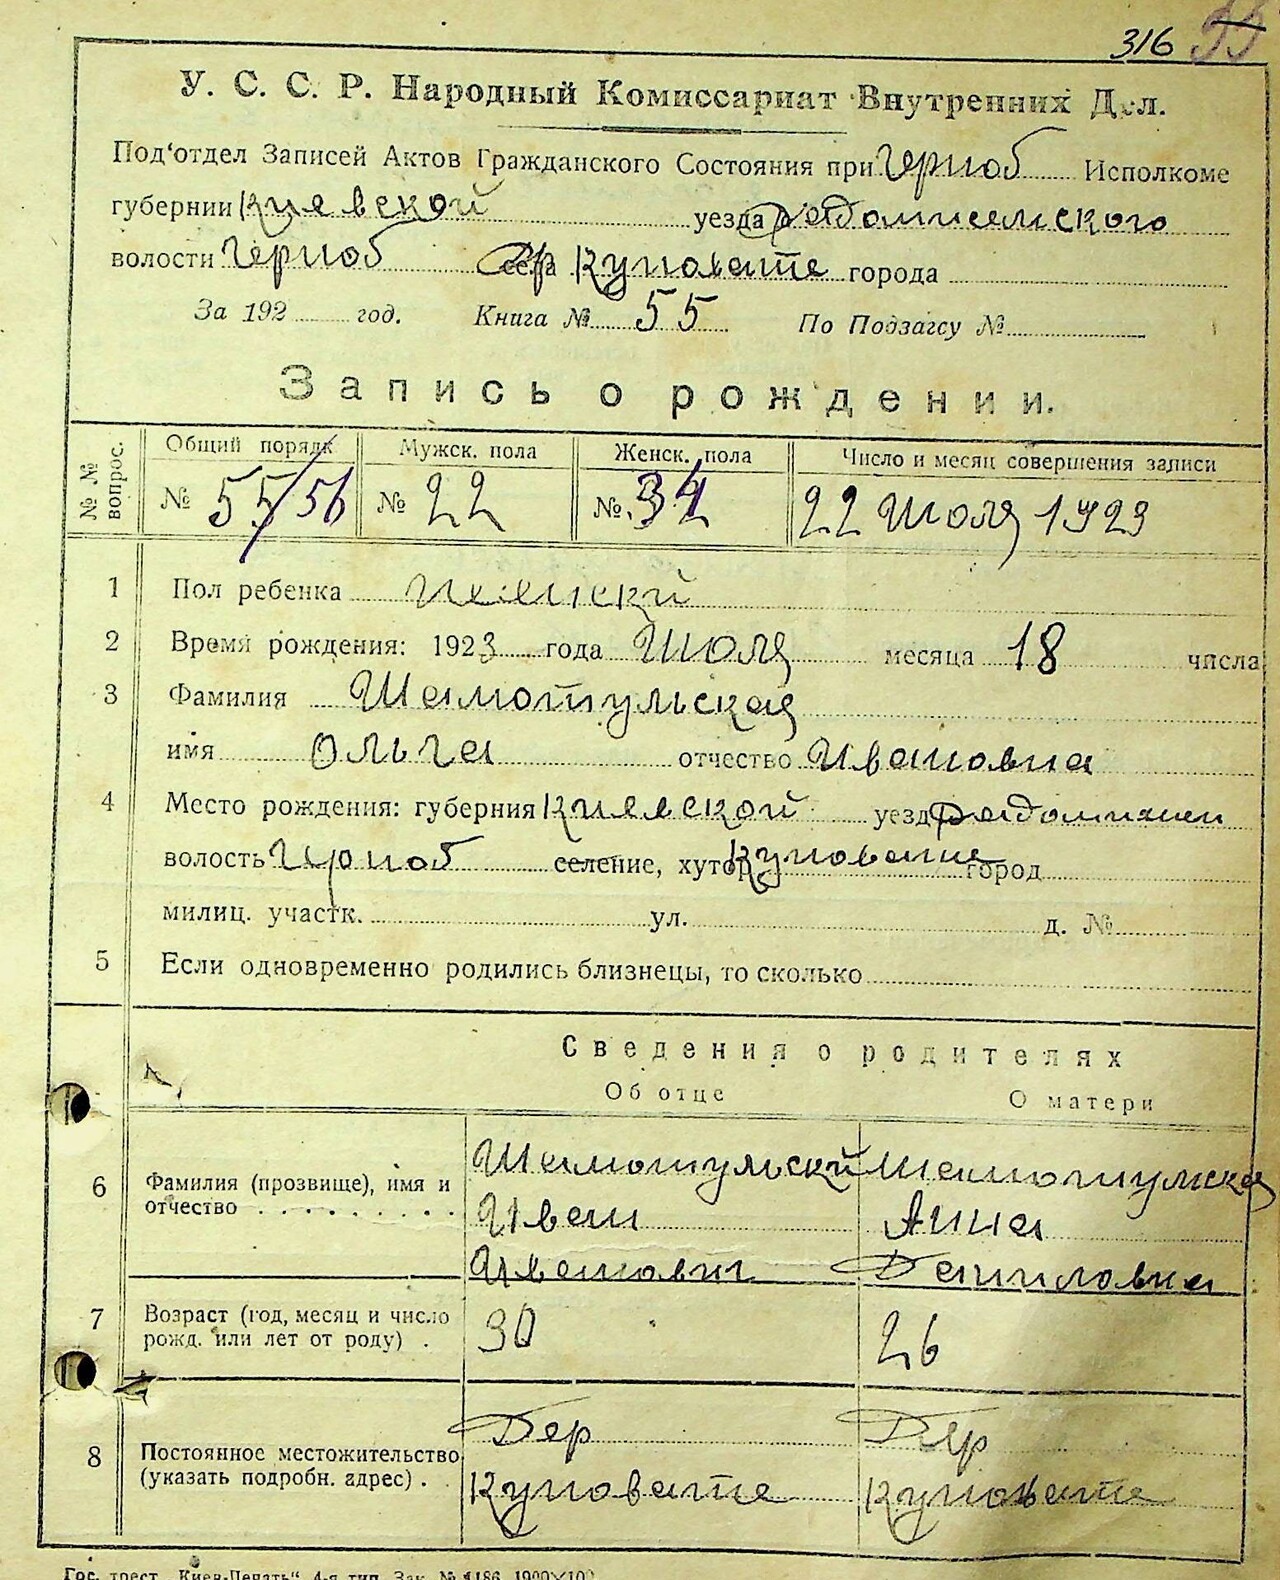 316 55
У. С. С. Р. Народный Комиссариат Внутренних Дел.
Под'отдел Записей Актов Гражданского Состояния при Черноб Исполкоме
губернии Киевской уезда Радомисельского
волости Черноб села Куповате города
За 192 год. Книга № 55 По Подзагсу №
Запись о рождении.
№№ вопрос. Общий порядк Мужск. пола Женск. пола Число и месяц совершения записи
№ 55/56 № 22 № 34 22 Июля 1923
1 Пол ребенка Женский
2 Время рождения: 1923 года Июля месяца 18 числа
3 Фамилия Шамотульская
имя Ольга отчество Ивановна
4 Место рождения: губерния Киевской уезд
волость Черноб селение, хутор Куповате город
милиц. участк. ул. д. №
5 Если одновременно родились близнецы, то сколько
Сведения о родителях
Об отце О матери
Шамотульский Шамотульская
6 Фамилия (прозвище), имя и
отчество Иван Анна
Иванович Даниловна
7 Возраст (год, месяц и число
рожд. или лет от роду) . 30 26
Дер Дер
8 Постоянное местожительство
(указать подробн. адрес) . Куповате Куповате
Гос. трест „Киев-Печать“ 4-я тип. Зак. №